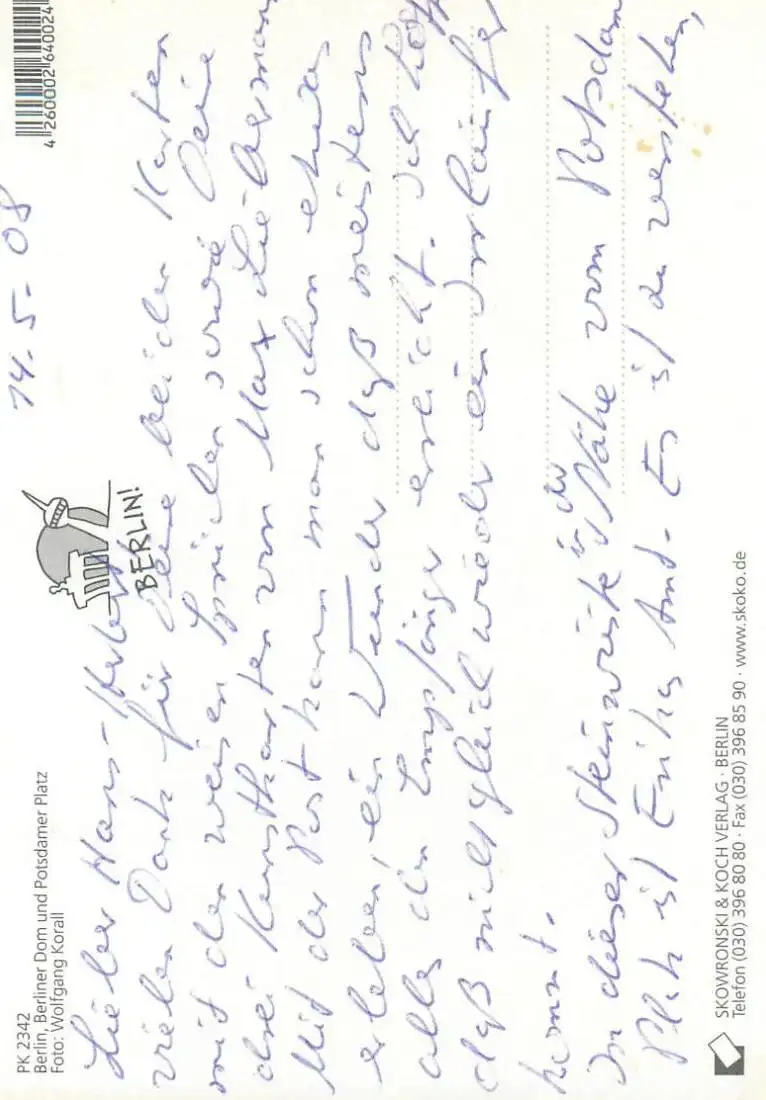 PK 2342
Berlin, Berliner Dom und Potsdamer Platz
Foto: Wolfgang Korall
BERLIN!
14.5.08
4 260002 640024
Lieber Hans-
vielen Dank für Deine beiden Karten
mit den weisen Sprüchen sowie Deine
drei Kunstkarten von Max Liebermann
Mit der Post kann man schon etwas
erleben, ein Wunder daß meistens
alles den Empfänger erreicht. Ich hoffe
daß nicht gleich wieder ein Irrläufer
kommt.
In dieser Steinwüste in der Nähe vom Potsdam
Platz ist Erikas Amt. Es ist zu verstehen,
SKOWRONSKI & KOCH VERLAG · BERLIN
Telefon (030) 396 80 80 · Fax (030) 396 85 90 · www.skoko.de